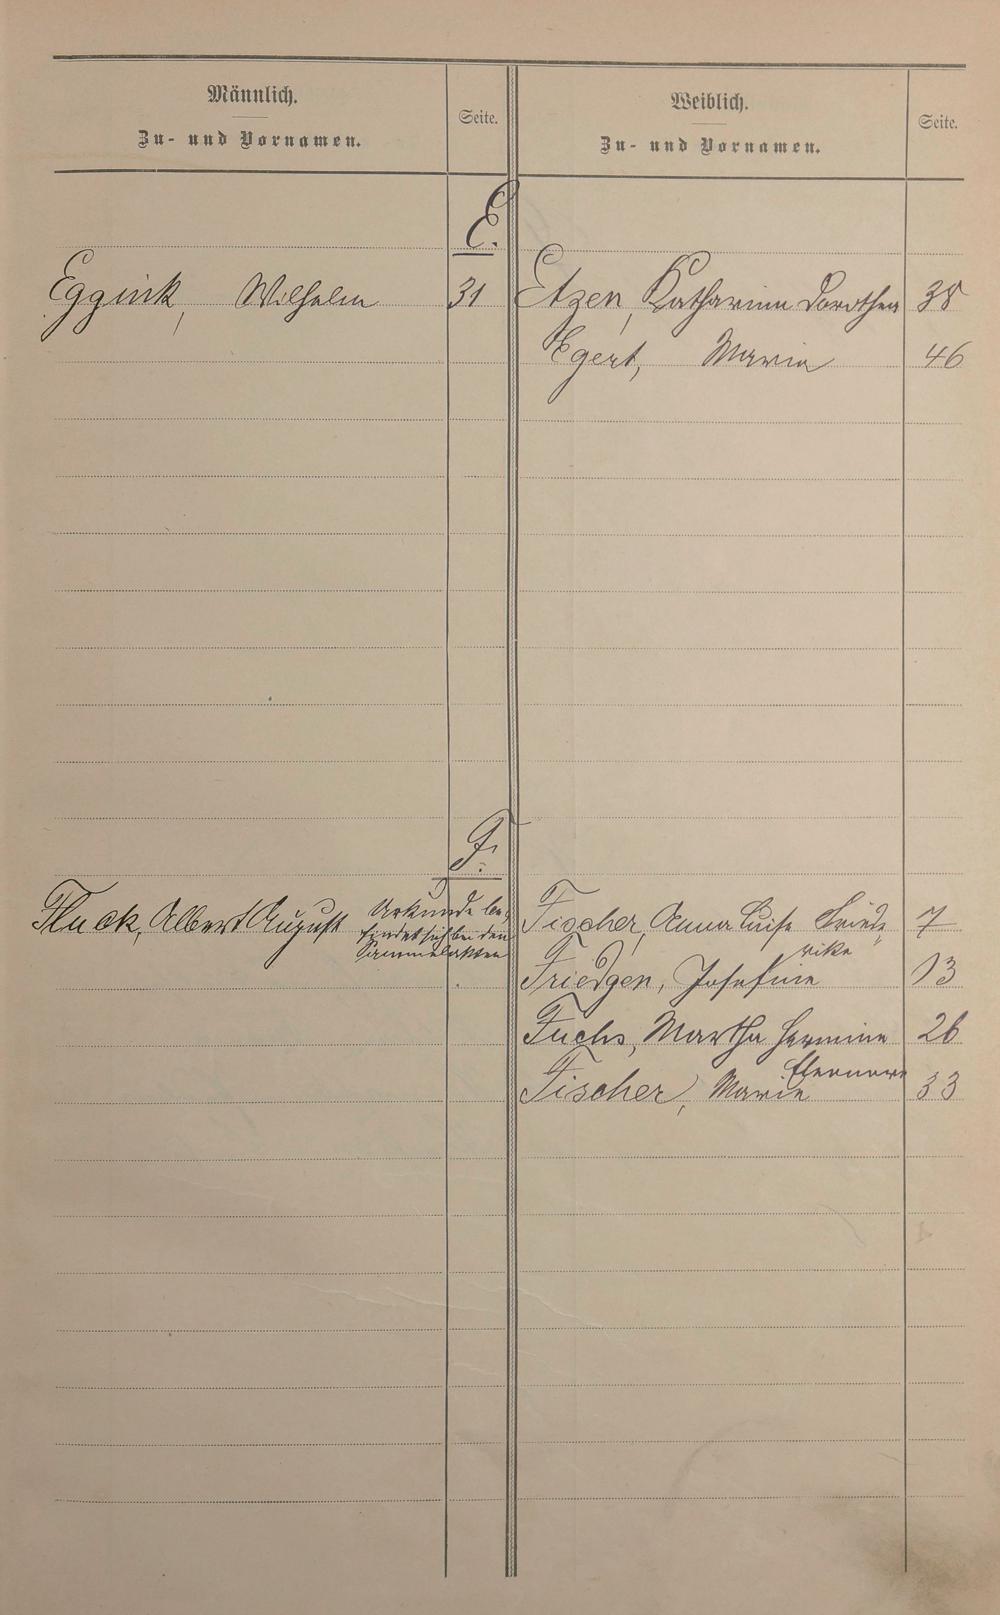 Männlich.
Zu- und Vornamen.
Seite.
Weiblich.
Zu- und Vornamen.
Seite.
E.
Eggink, Wilhelm 31
Etzen, Katharina Dorothea 38
Egert, Maria 46
F.
Fluck, Albert August
Urkunde be-
findet sich bei den
Sammelakten
Fischer, Anna Luise Friede- 7
rike
Friedgen, Josefine 13
Fuchs, Martha Hermine 26
Eleonore
Fischer, Marie 33